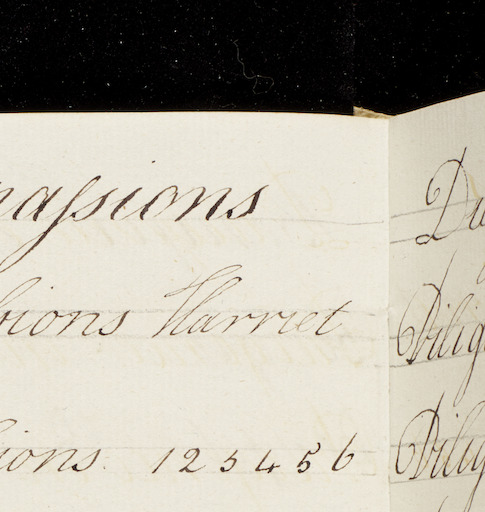 paſsions
bions Harriet
ions. 1 2 3 4 5 6
Du
Dilig
Dilig